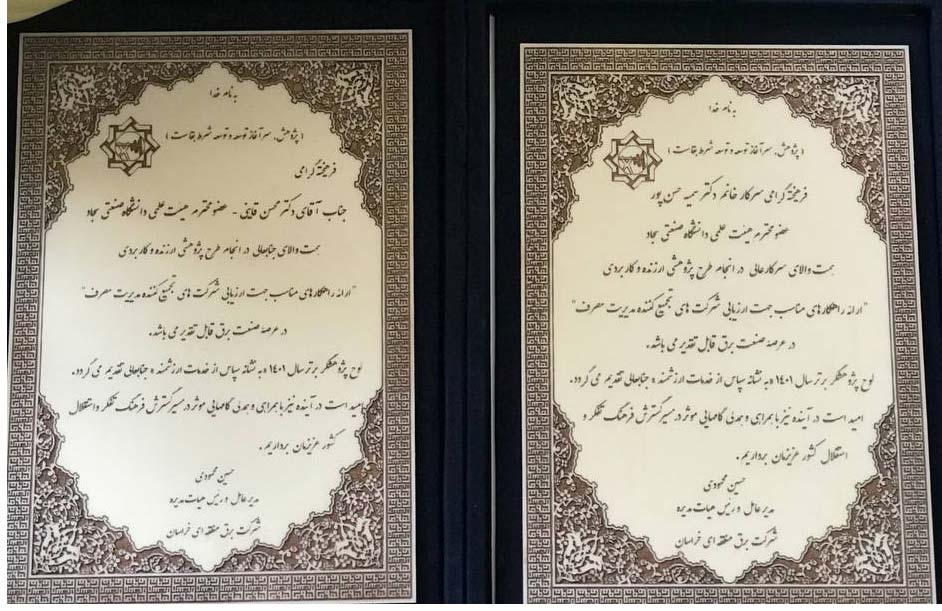 به نام خدا
(پژوهش، سرآغاز توسعه و توسعه شرط بقاست)
فرهیخته گرامی سرکار خانم دکتر سمیه حسن پور
عضو محترم هیئت علمی دانشگاه صنعتی سجاد
همت والای سرکارعالی در انجام طرح پژوهشی ارزنده و کاربردی
"ارائه راهکارهای مناسب جهت ارزیابی شرکت های تجمیع کننده مدیریت مصرف"
در عرصۀ صنعت برق قابل تقدیر می باشد.
لوح پژوهشگر برتر سال ۱۴۰۱ «به نشانه سپاس از خدمات ارزشمند» جنابعالی تقدیم می گردد.
امید است در آینده نیز با همراهی و همدلی گامهایی موثر در مسیر گسترش فرهنگ تفکر و
استقلال کشور عزیزمان برداریم.
حسین محمودی
مدیرعامل و رییس هیات مدیره
شرکت برق منطقه ای خراسان
به نام خدا
(پژوهش، سرآغاز توسعه و توسعه شرط بقاست)
فرهیخته گرامی
جناب آقای دکتر محسن قاینی - عضو محترم هیئت علمی دانشگاه صنعتی سجاد
همت والای جنابعالی در انجام طرح پژوهشی ارزنده و کاربردی
"ارائه راهکارهای مناسب جهت ارزیابی شرکت های تجمیع کننده مدیریت مصرف"
در عرصۀ صنعت برق قابل تقدیر می باشد.
لوح پژوهشگر برتر سال ۱۴۰۱ «به نشانه سپاس از خدمات ارزشمند» جنابعالی تقدیم می گردد.
امید است در آینده نیز با همراهی و همدلی گامهایی موثر در مسیر گسترش فرهنگ تفکر و استقلال
کشور عزیزمان برداریم.
حسین محمودی
مدیرعامل و رییس هیات مدیره
شرکت برق منطقه ای خراسان